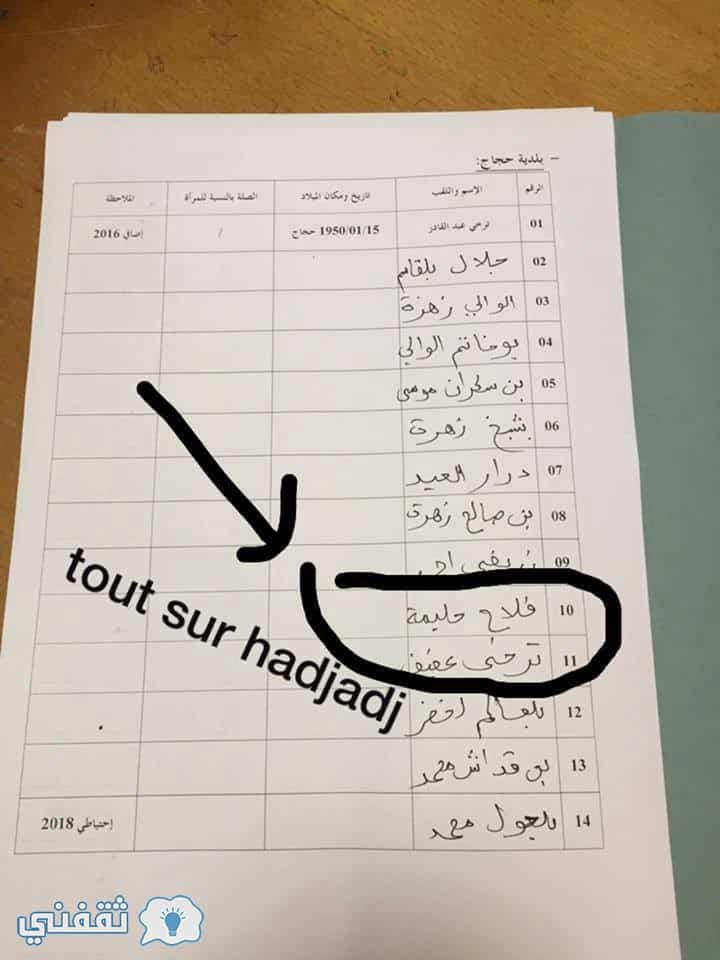 - بلدية حجاج:
الرقم الإسم واللقب تاريخ ومكان الميلاد الصلة بالنسبة للمرأة الملاحظة
01 ترحي عبد القادر 1950/01/15 حجاج / إضافي 2016
02 جلال بلقاسم
03 الوالي زهرة
04 بوخاتم الوالي
05 بن سكران موسى
06 زهرة
07 درار العيد
08 بن صالح زهرة
09
10 فلاح حليمة
11 عفيف
12 بلعالم لخضر
13 بوقداش محمد
14 بلعجول محمد إحتياطي 2018
tout sur hadjadj
ثقفني